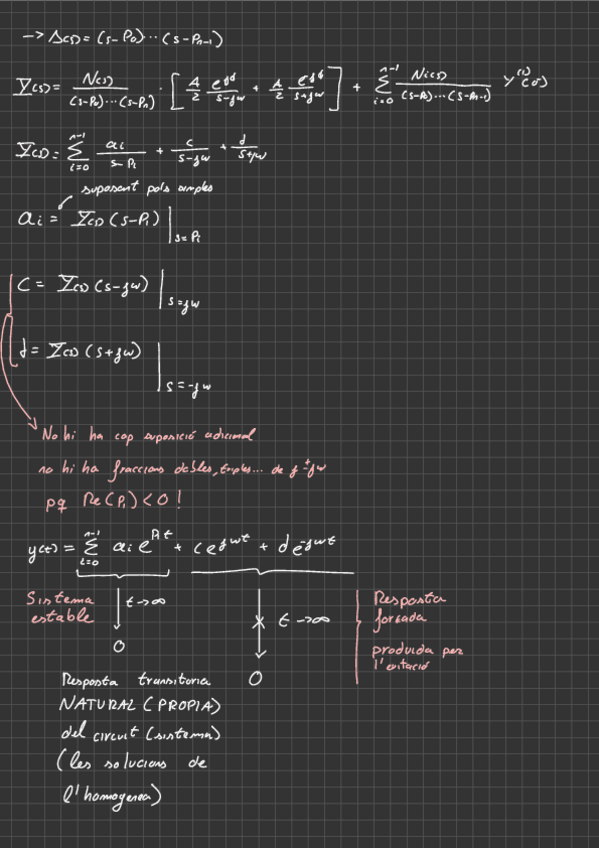 → Δ(s) = (s-P₀)···(s-Pₙ₋₁)
Y(s) = N(s) / (s-P₀)···(s-Pₙ) · [ A/2 e^{jφ}/(s-jω) + A/2 e^{-jφ}/(s+jω) ] + Σ_{i=0}^{n-1} Ni(s) / (s-P₀)···(s-Pₙ₋₁) y^{(i)}(0)
Y(s) = Σ_{i=0}^{n-1} ai/(s-Pi) + c/(s-jω) + d/(s+jω)
suposant pols simples
ai = Y(s) (s-Pi) |s=Pi
C = Y(s) (s-jω) |s=jω
d = Y(s) (s+jω) |s=-jω
No hi ha cap suposició adicional
no hi ha fraccions dobles, triples... de ±jω
pq Re(Pi) < 0 !
y(t) = Σ_{i=0}^{n-1} ai e^{Pi t} + c e^{jωt} + d e^{-jωt}
Sistema
estable
t→∞
0
t→∞
0
Resposta
forçada
produida per
l'exitació
Resposta transitoria
NATURAL (PROPIA)
del circuit (sistema)
(les solucions de
l'homogenea)